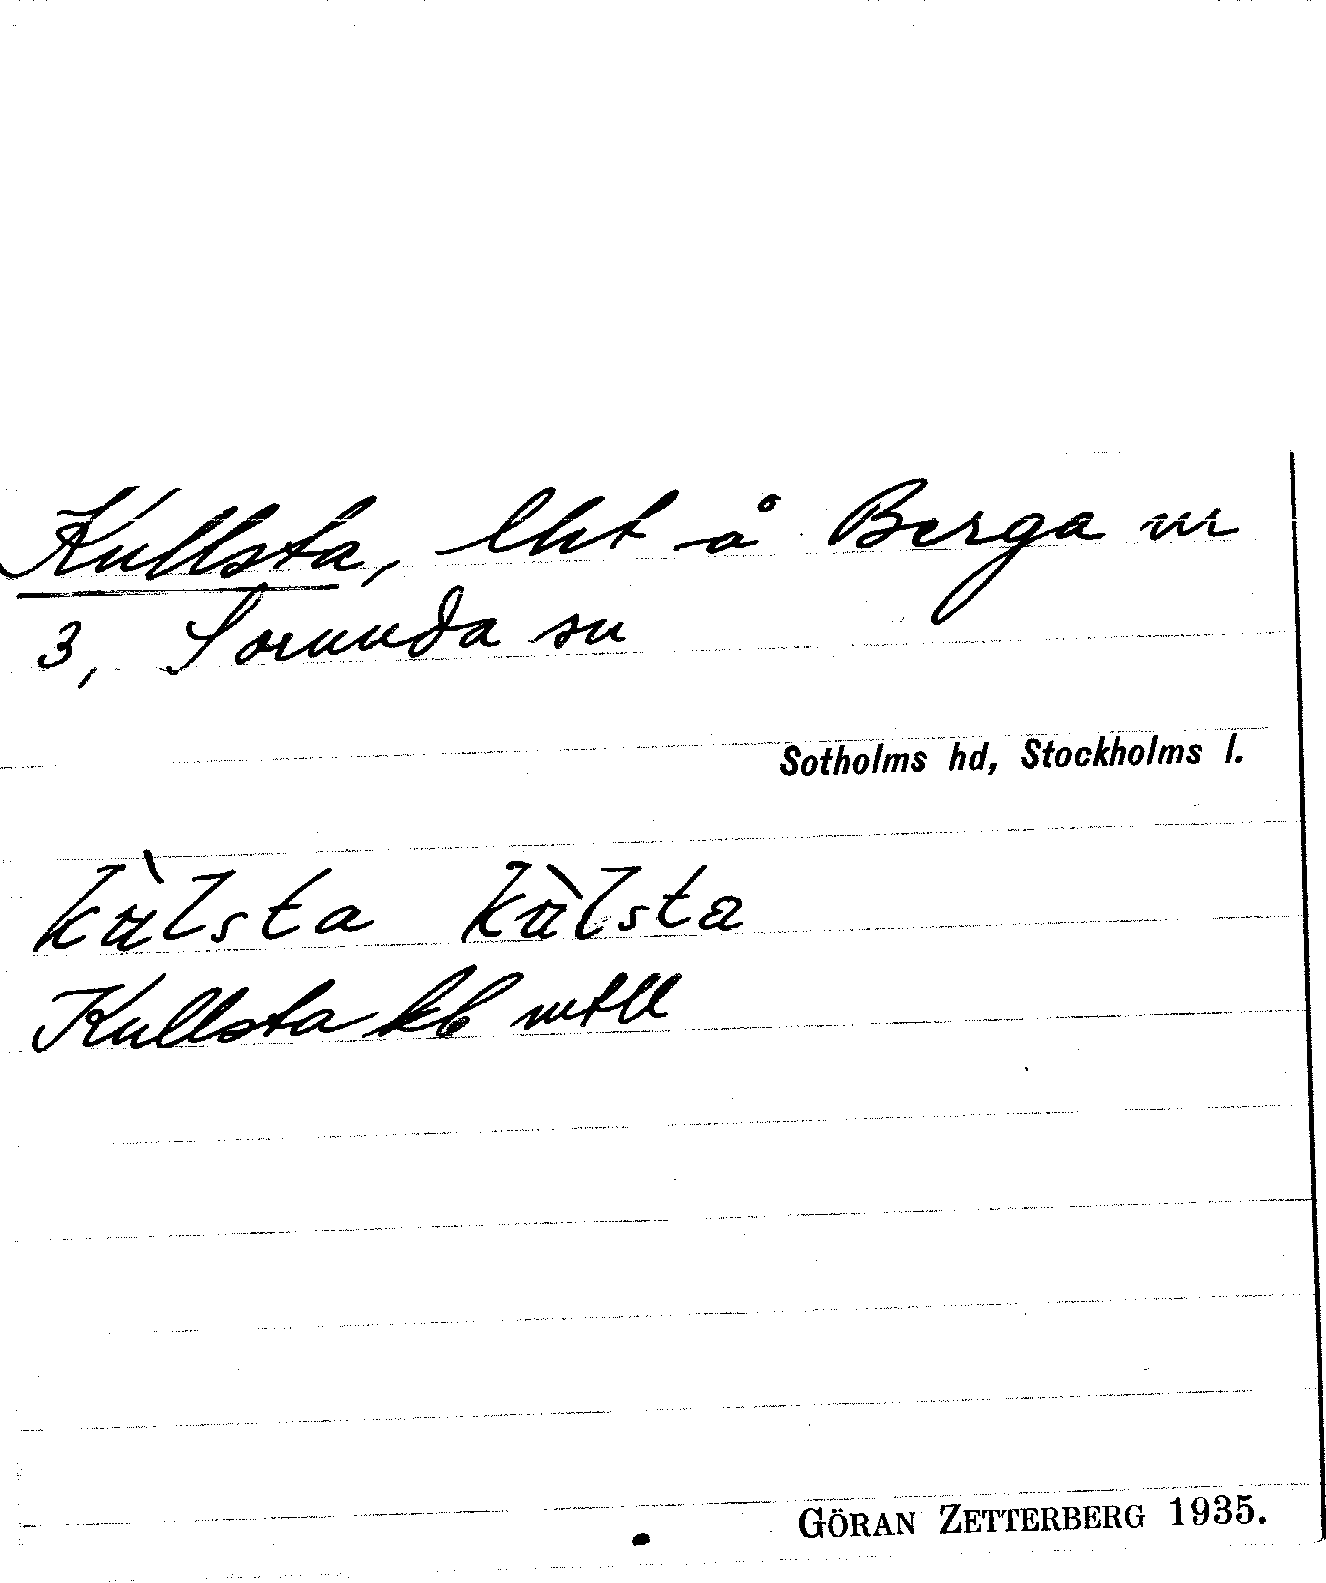 Kullsta, lht å Berga nr
3, Sorunda sn
Sotholms hd, Stockholms l.
kùlsta kùlsta
Kullsta kb mtll
GÖRAN ZETTERBERG 1935.